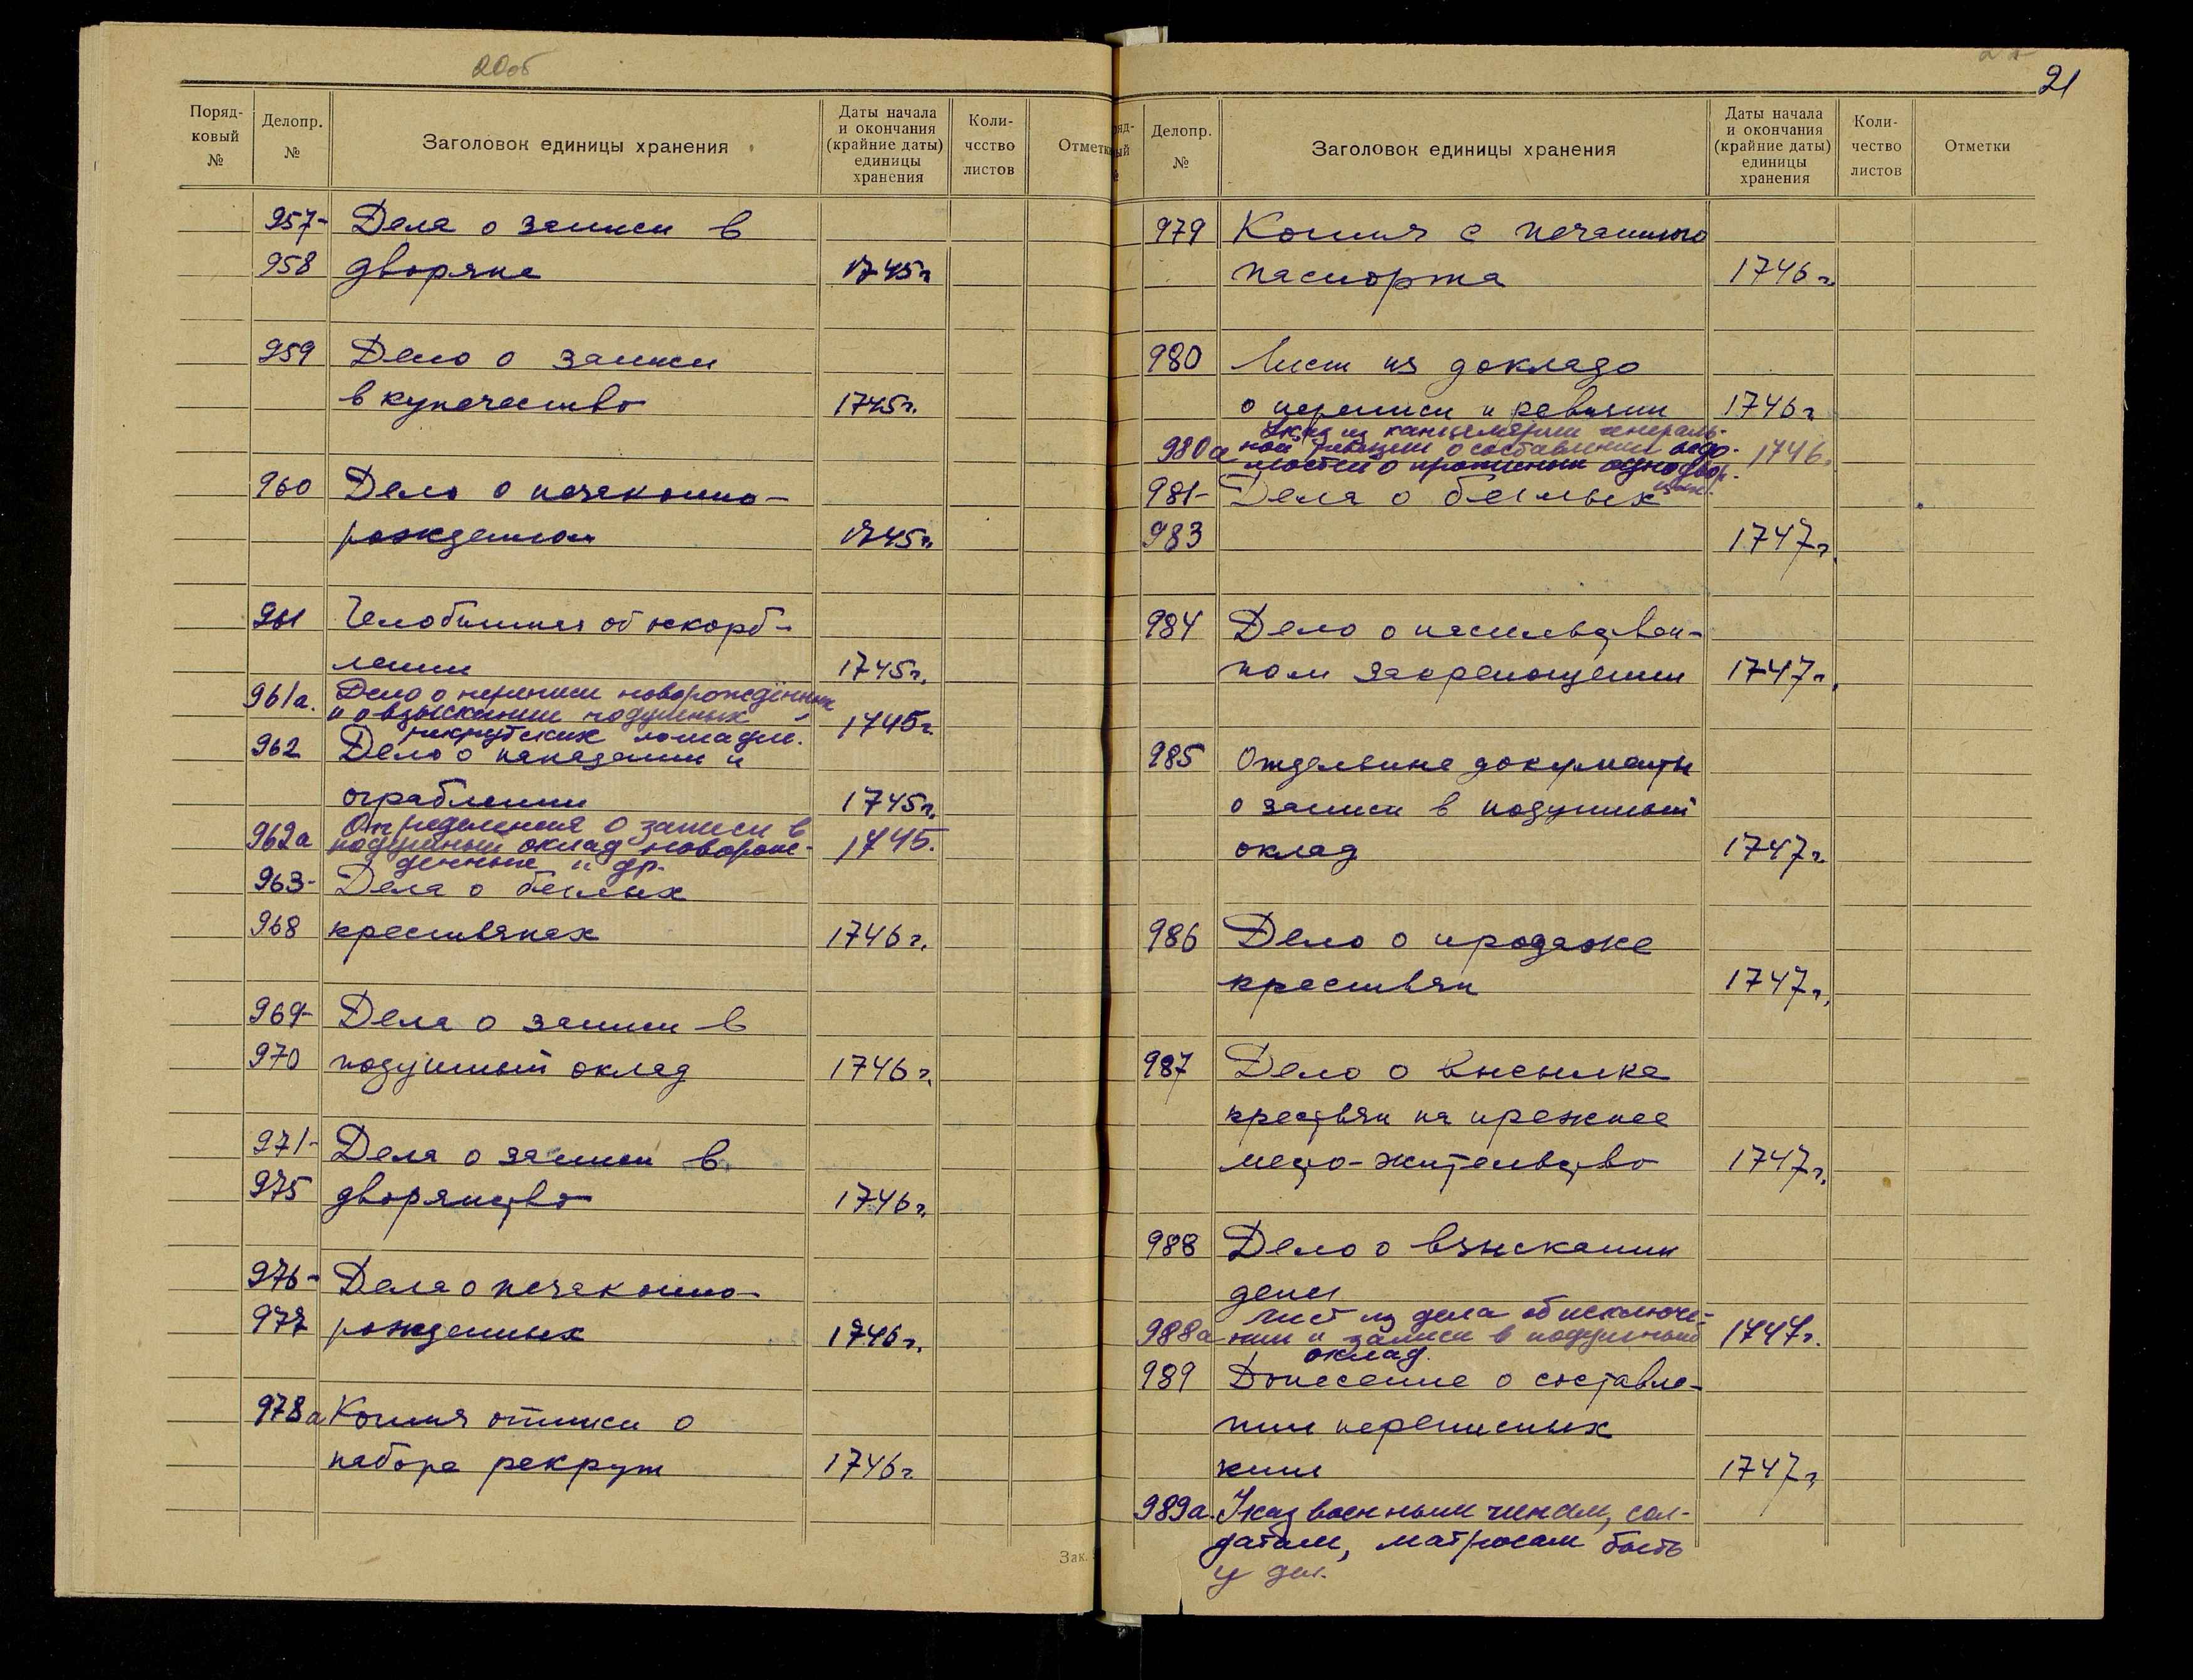 20об
Поряд-
ковый
№
Делопр.
№
Заголовок единицы хранения
Даты начала
и окончания
(крайние даты)
единицы
хранения
Коли-
чсство
листов
Отметк
957- Дела о записи в
958 дворяне 1745 г.
959 Дело о записи
в купечество 1745 г.
960 Дело о незаконно-
рожденном 1745 г.
961 Челобитная об оскорб-
лении 1745 г.
961а. Дело о переписи новорождённых
и о взыскании подушных 1745 г.
рекрутских лошадей.
962 Дело о нападении и
ограблении 1745 г.
Определения о записи в
962а подушный оклад новорож- 1745.
денные и др.
963- Дела о беглых
968 крестьянах 1746 г.
969- Дела о записи в
970 подушный оклад 1746 г.
971- Дела о записи в
975 дворянство 1746 г.
976- Дела о незаконно-
977 рожденных 1746 г.
978а Копия отписи о
наборе рекрут 1746 г.
Зак.
21
ряд-
ый
Делопр.
№
Заголовок единицы хранения
Даты начала
и окончания
(крайние даты)
единицы
хранения
Коли-
чество
листов
Отметки
979 Копия с печатного
паспорта 1746 г.
980 Лист из доклада
о переписи и ревизии 1746 г
Указ из канцелярии генераль-
980а ной ревизии о составлении ведо- 1746.
мостей о прописных однодвор-
цах.
981- Дела о беглых
983 1747 г.
984 Дело о насильствен-
ном закрепощении 1747 г.
985 Отдельные документы
о записи в подушный
оклад 1747 г.
986 Дело о продаже
крестьян 1747 г.
987 Дело о высылке
крестьян на прежнее
место-жительство 1747 г.
988 Дело о взыскании
денег
Лист из дела об исключе-
988а нии и записи в подушный 1747 г.
оклад.
989 Донесение о составле-
нии переписных
книг 1747 г.
989а. Указ военным чинам, сол-
датам, матросам быть
у дел.